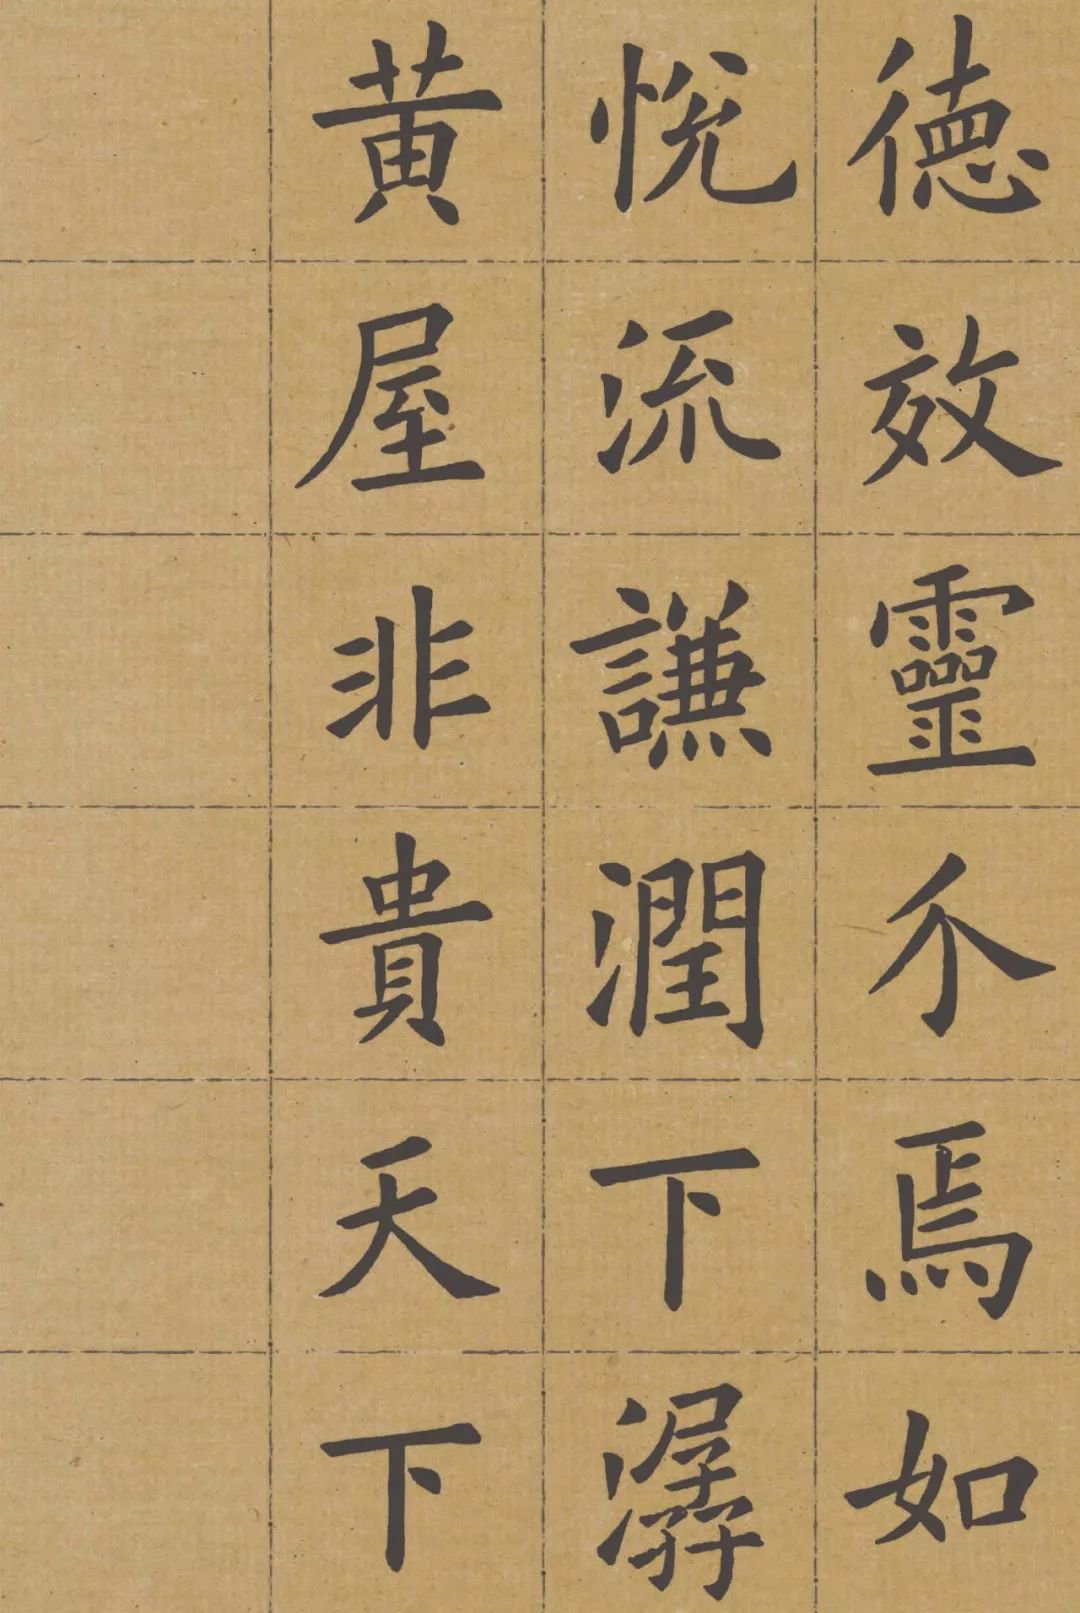 德效靈介焉如
悅流謙潤下潺
黄屋非貴天下